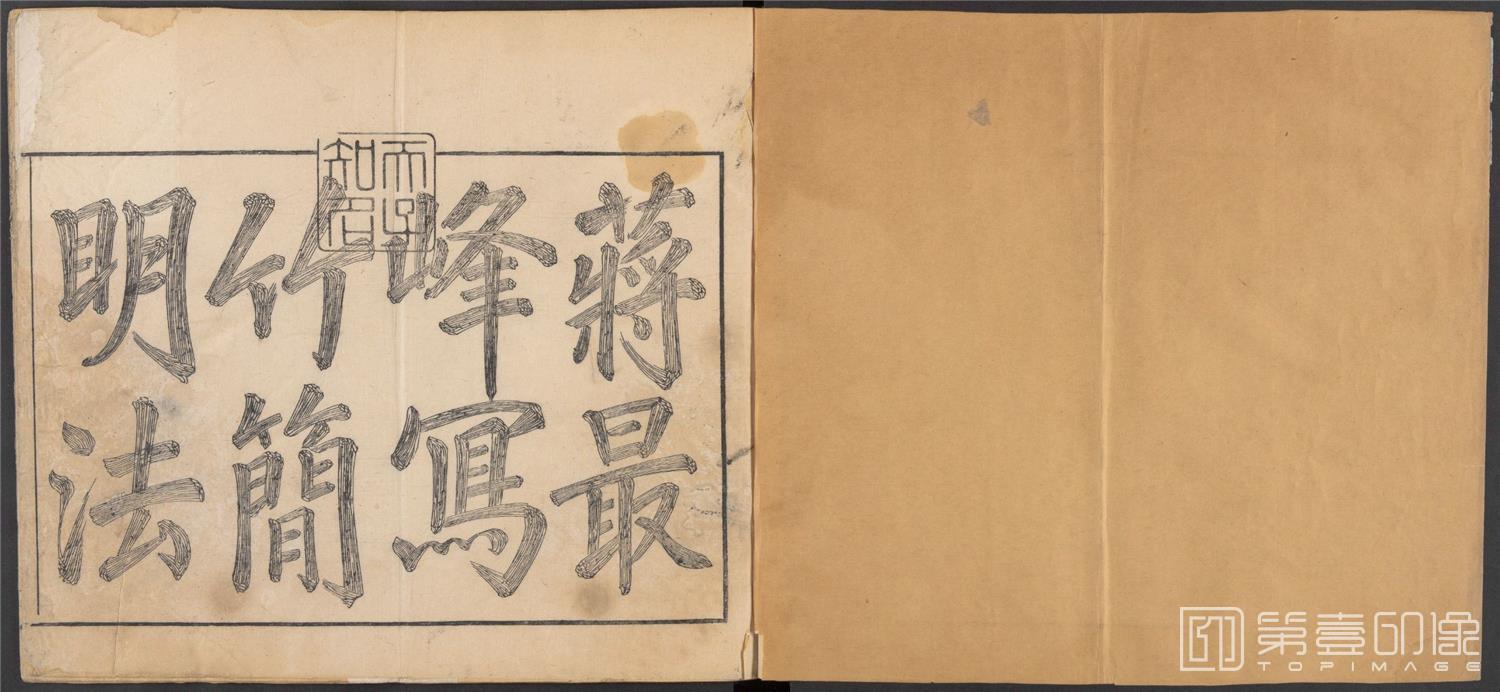 蔣最
峰寫
竹簡
明法
第壹印像
TOPIMAGE